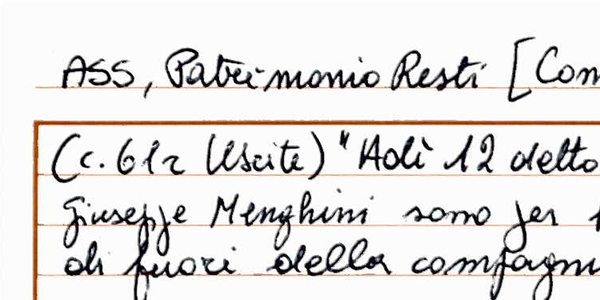 ASS, Patrimonio Resti [Com
(c. 61r Uscite) "Adì 12 detto
Giuseppe Menghini sono per
di fuori della compagni